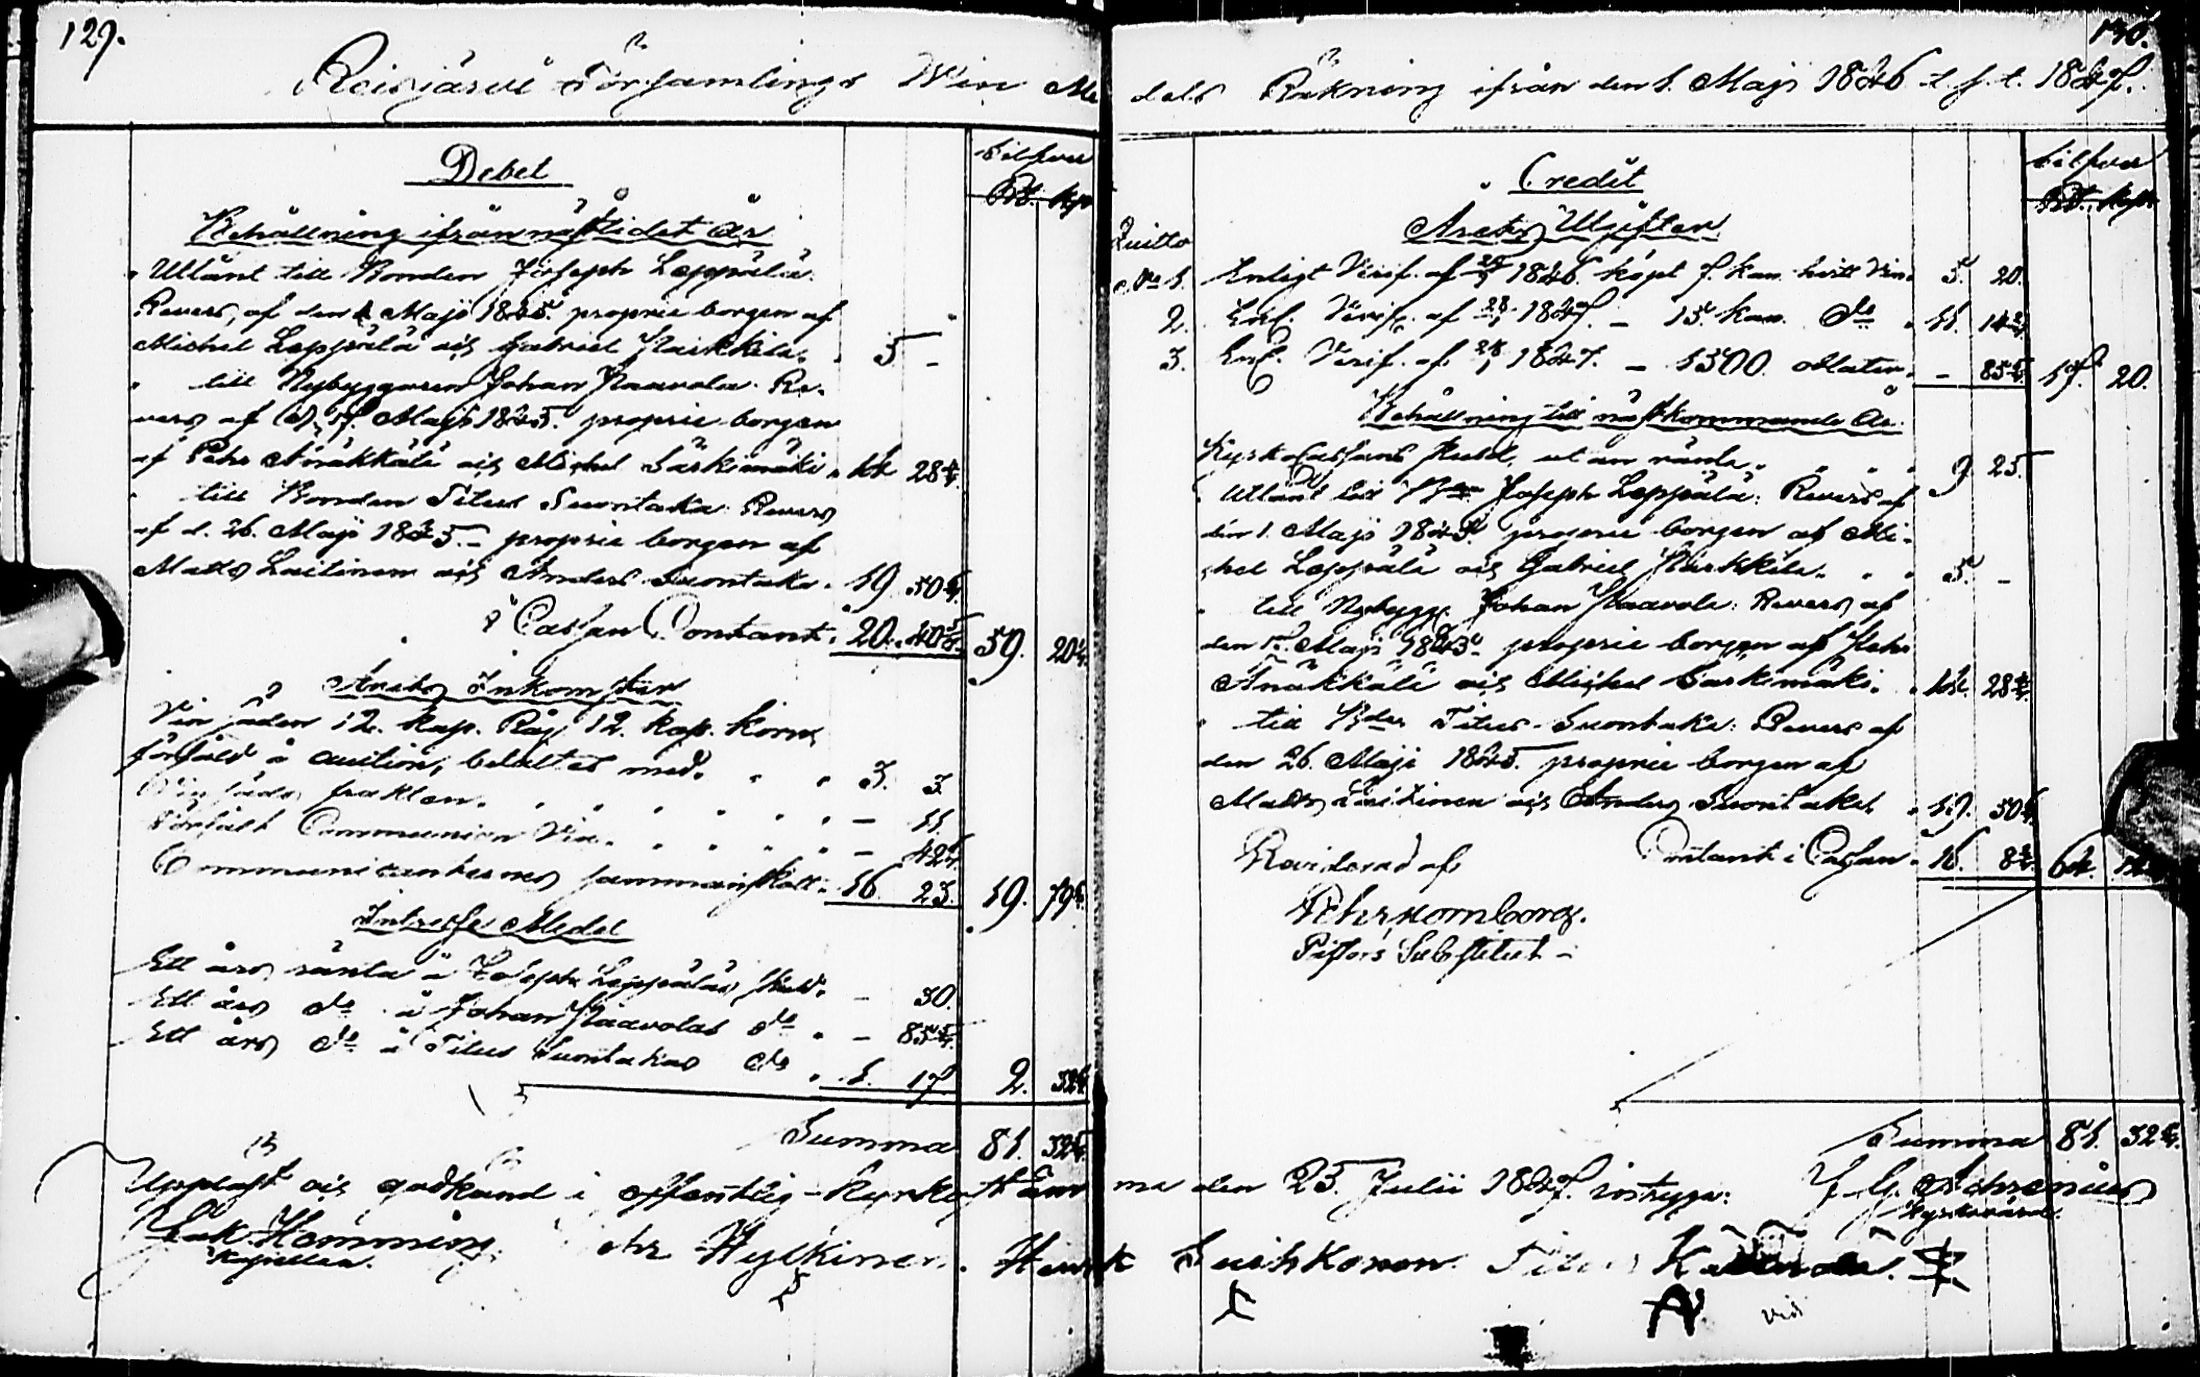 129.
Reisjärvi Församlings Win Me
Debet
Silfver
Rb. kop
Behållning ifrån nästlidet År
" Utlånt till Bonden Joseph Leppälä:
Revers, af den 1 Maji 1845. proprie borgen af
Michel Leppälä och Gabriel Parkkila. 5 -
" till Nybyggaren Johan Paavola: Re-
vers af d. 17. Maji 1845. proprie borgen
af Pehr Änäkkälä och Michel Särkimäki. 14 28 4/7.
" till Bonden Titus Suontaka: Revers
af d. 26. Maji 1845. - proprie borgen af
Matts Laitinen och Anders Suontaka. 19. 50 6/7.
I Cassan Contant. 20. 40 5/7. 59. 20 1/7.
Årets Inkomster
Vin säden 12. kap. Råg 12. kap. korn
försåld å auction, betaltes med. 3. 3.
Vin säds frakten. - 11.
Försålt Communion Vin. - 42 4/7.
Communicanternes sammanskott. 16. 23. 19. 79 4/7.
Intresse Medel
Ett års ränta å Joseph Leppäläs skuld. - 30.
Ett års do å Johan Paavolas do. - 85 5/7.
Ett års do å Titus Suontakas do. 1. 17 2. 32 5/7.
Summa 81. 32 5/7.
130.
dels Räkning ifrån den 1. Maji 1846 t. s. t. 1847.
Credit
Silfver
Rb. kop.
Årets Utgifter
Quitto
No 1. Enligt Verif. af 1846. köpt 7. kan. hvitt Vin. 5. 20.
2. Enl. Verif. af 1847. - 15. kan. do. 11. 14 2/7.
3. Enl. Verif. af 1847. - 1500. oblater. - 85 5/7. 17. 20.
Behållning till nästkommande År.
Kyrk Cassans skuld, utan ränta. 9. 25.
" Utlånt till Bdn Joseph Leppälä: Revers af
den 1. Maji 1845. proprie borgen af Mi-
chel Leppälä och Gabriel Parkkila. 5. -
" till Nybygg. Johan Paavola: Revers af
den 17. Maji 1845. proprie borgen af Pehr
Änäkkälä och Michel Särkimäki. 14. 28 4/7.
" till Bdn Titus Suontaka: Revers af
den 26. Maji 1845. proprie borgen af
Matts Laitinen och Anders Suontaka. 19. 50 6/7.
Contant i Cassan. 16. 8 2/7. 64. 12
Reviderad af
Pehr
Pastors Substitut -
Summa 81. 32 5/7.
Uppläst och godkänd i offentlig Kyrkostämma den 25. Julii 1847. intyga: J. G.
Kyrkovärd.
Isak Hemming
Kapellan.
Hylkinen. Henrik Suihkonen. Titus
vid